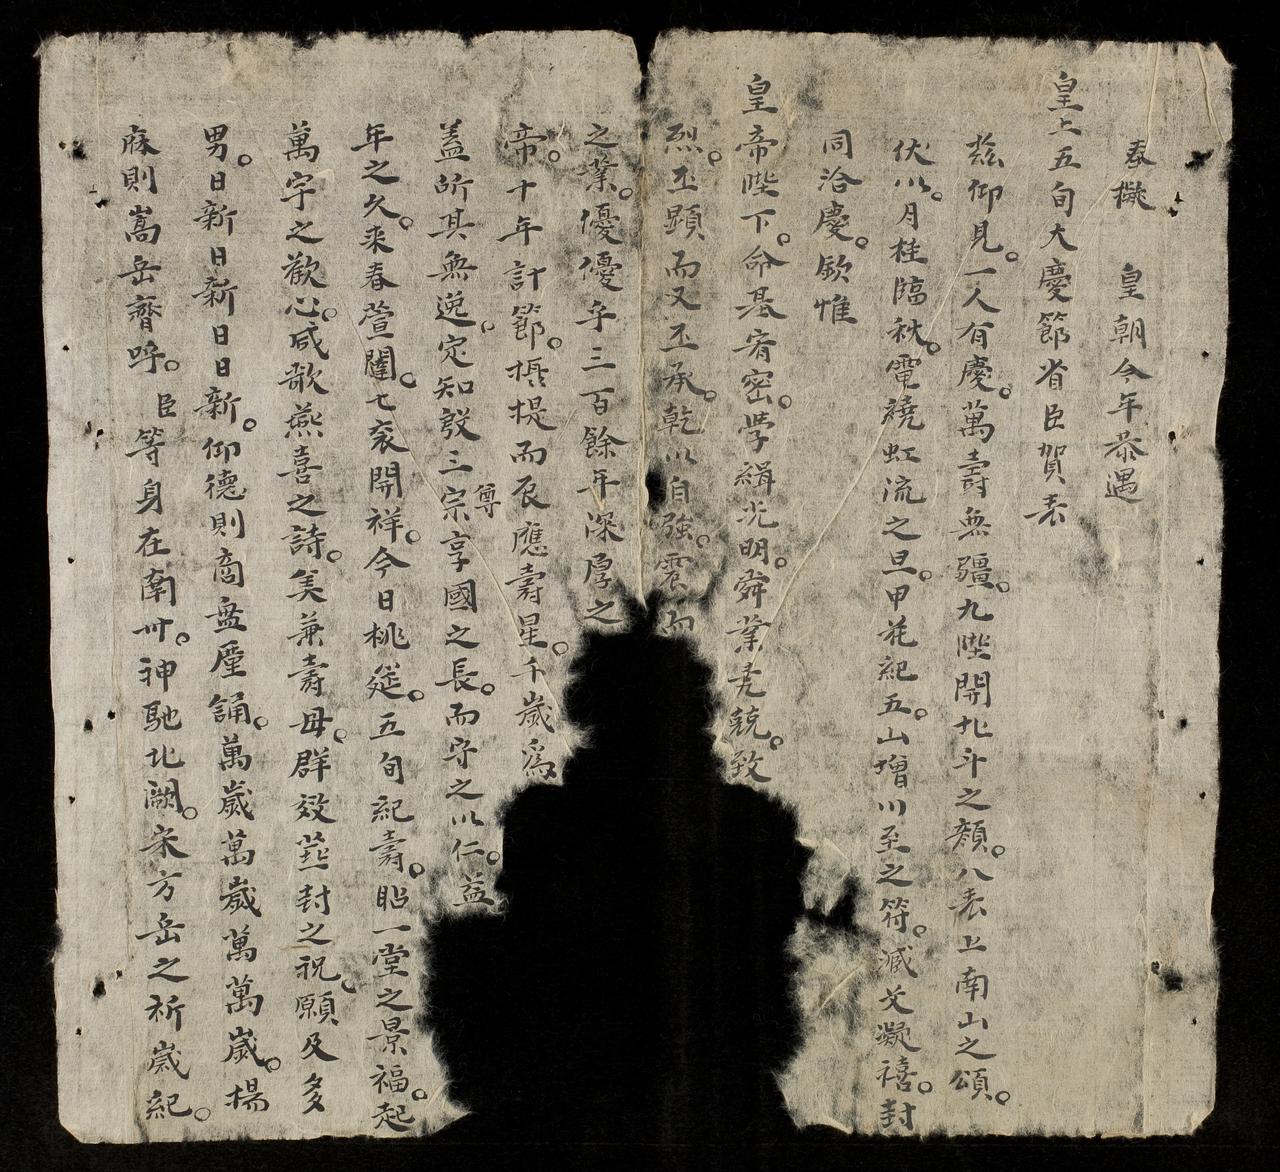 春擬　皇朝今年恭遇
皇上五旬大慶節省臣賀表
茲仰見。一人有慶。萬壽無疆。九陛開北斗之顏。八表上南山之頌。
伏以。月桂臨秋。電繞虹流之旦。甲花紀五。山增川至之符。滅爻凝禧。封
同洽慶。欽惟
皇帝陛下。命基宥密。學緝光明。舜業堯兢。致
烈。丕顯而又丕承。乾以自強。震而
之業。優優乎三百餘年深厚之
帝。十年計節。提而辰應壽星。千歲爲
蓋所其無逸。定知殷三宗享國之長。而守之以仁。益
傳
年之久。來春萱闈。七袠開祥。今日桃筵。五旬紀壽。貽一堂之景福。起
萬宇之歡心。咸歌燕喜之詩。美兼壽母。群效華封之祝。願及多
男。日新日新日日新。仰德則商盤厪誦。萬歲萬歲萬萬歲。揚
庥則嵩岳齊呼。臣等身在南州。神馳北闕。宋方岳之祈歲紀。